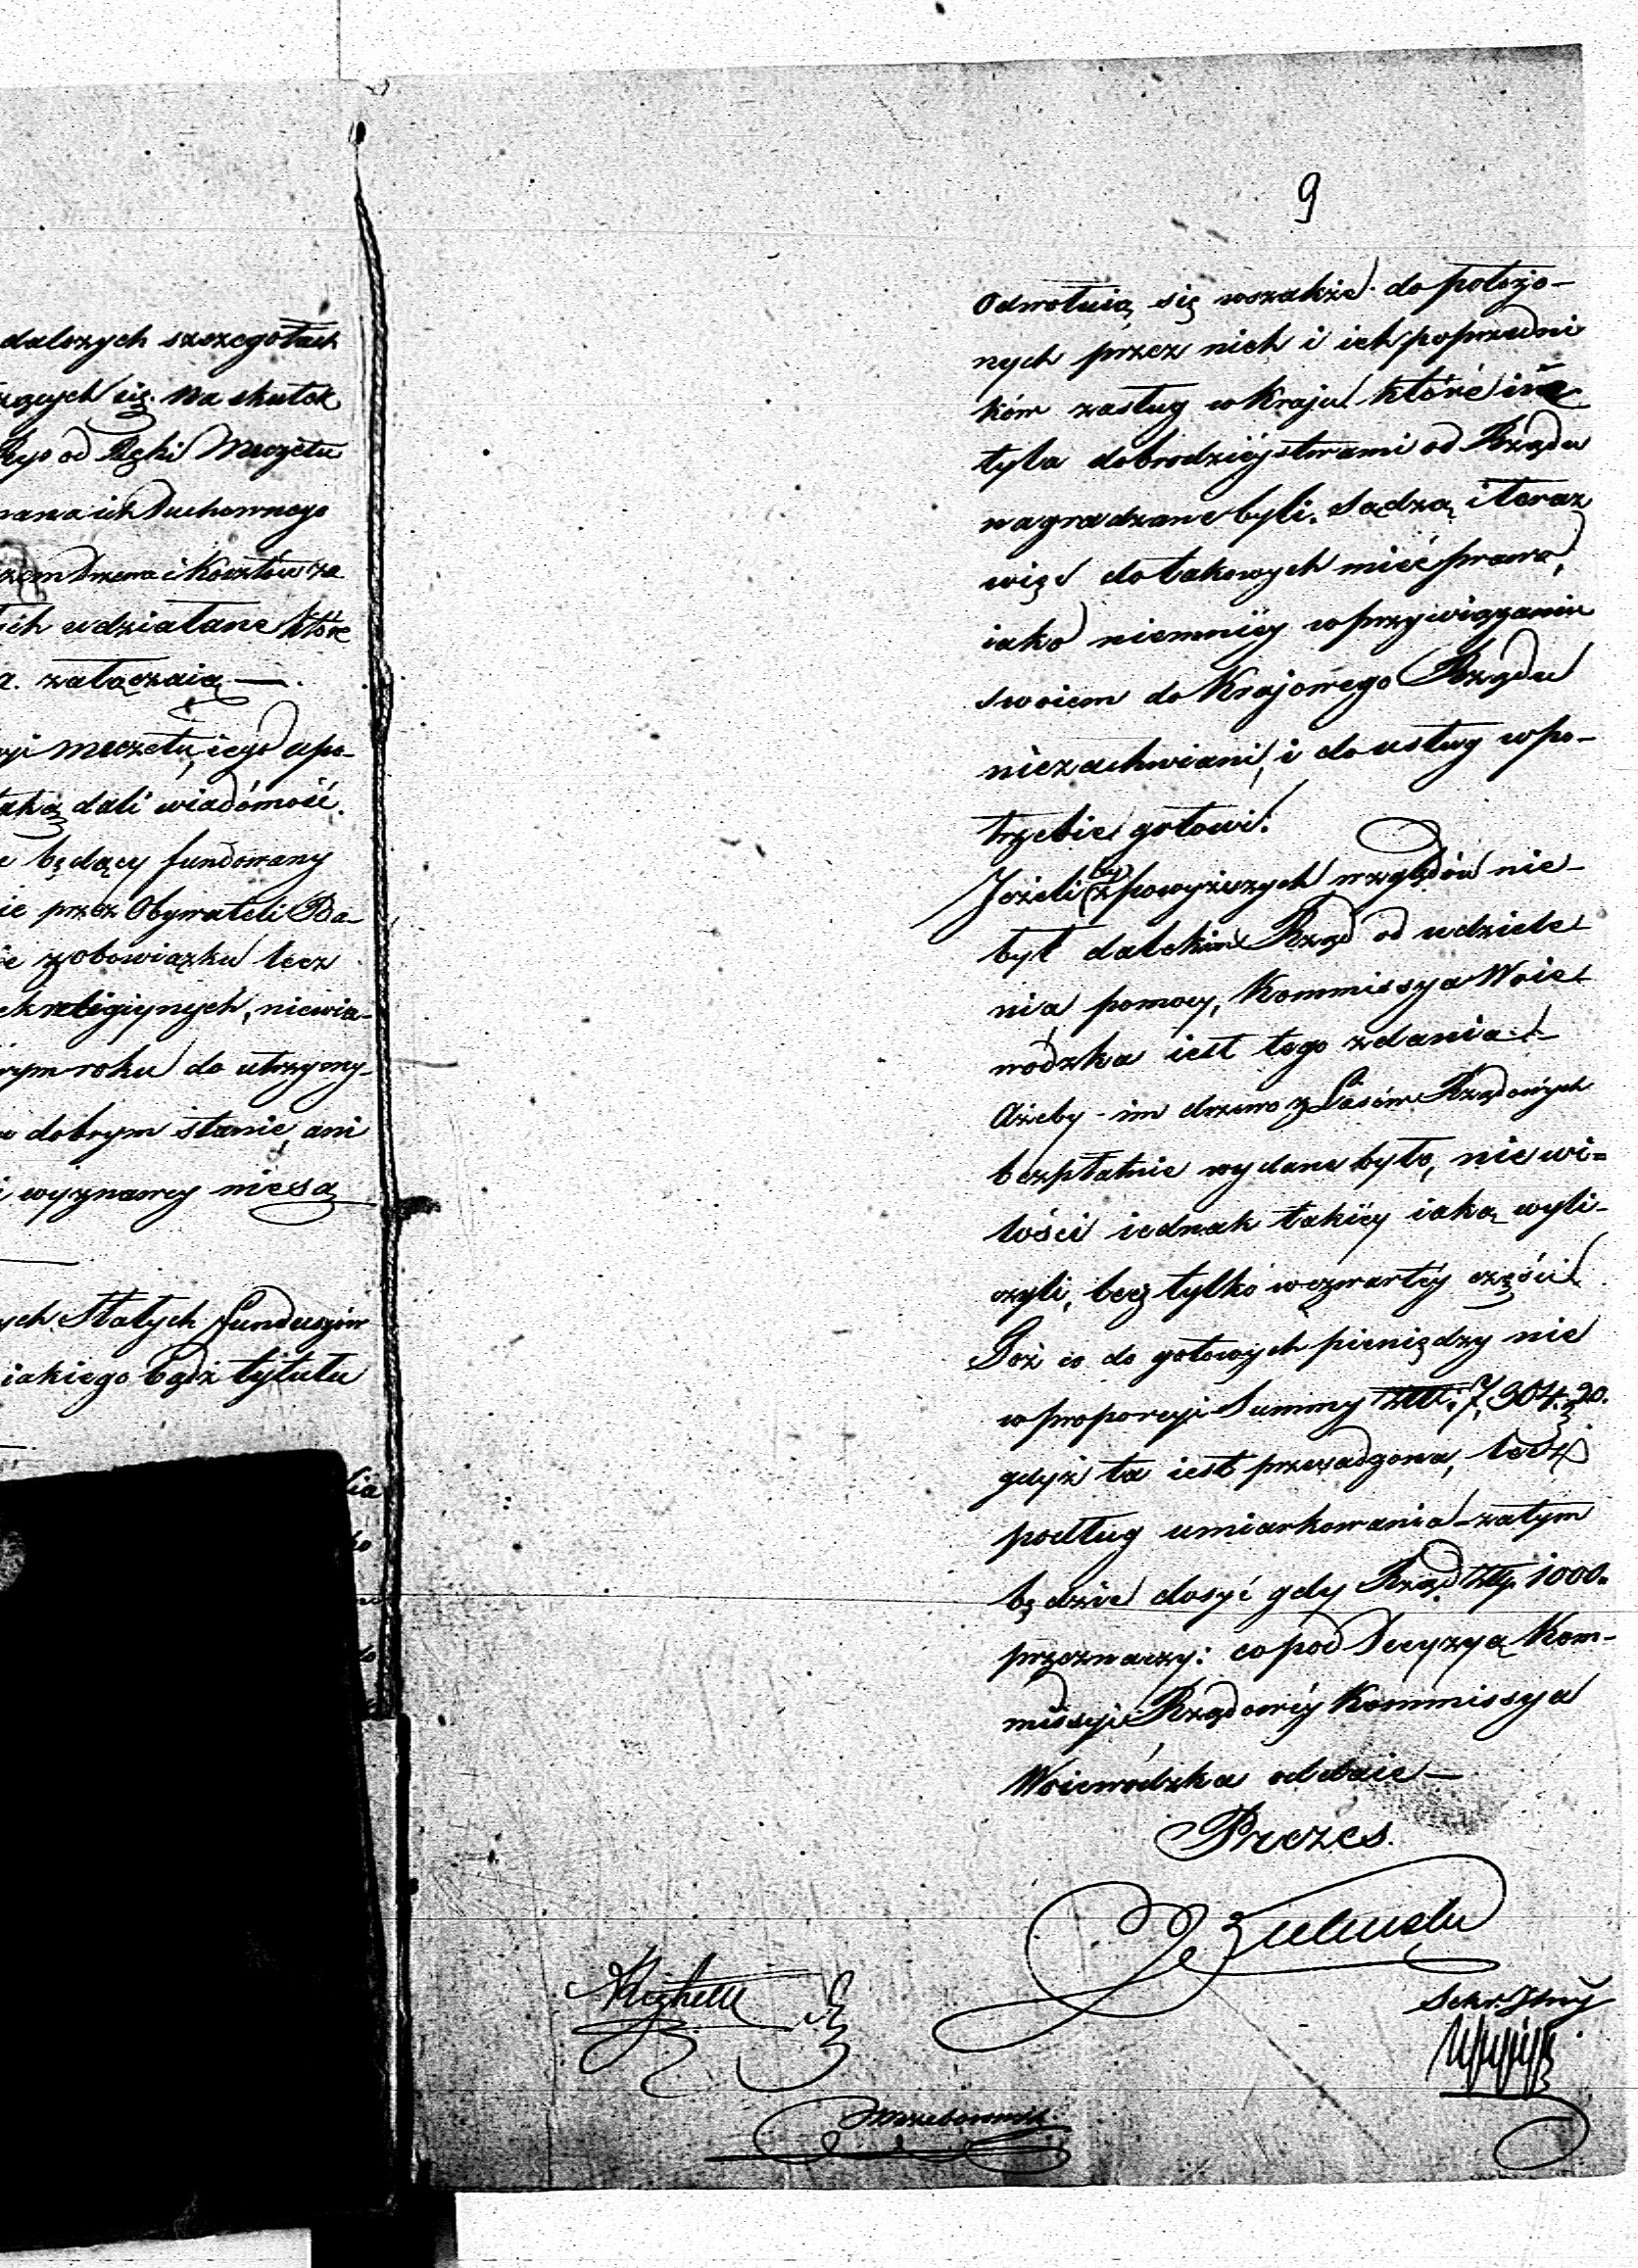 dalszych szczegołach
się. Na skutek
od Ręki Meczetu
ich Duchownego
Drzewa i Kosztów za
ich udziałane które
załączaią —.
Meczetu, iego upo-
taką dali wiadómość.
będący fundowany
ie przez Obywateli Ba-
zobowiązku lecz
religiynych, niewia-
rym roku do utrzymy-
w dobrym stanie, ani
i wyznawcy niesą
ych Stałych funduszów
iakiego bądź tytułu
9
Odwołuią się wszakże do położo-
nych przez nich i ich poprzedni
ków zasług w Kraju które iż
tyla dobrodzieystwami od Rządu
nagradzane byli. Sądzą i teraz
więc do takowych mieć prawo,
iako niemniéy w przywiązaniu
swoiem do Krajowego Rządu
niezachwiani, i do usług w po-
trzebie gotowi.
Jeżeli by z powyższych względów nie-
był dalekim Rząd od udziele
nia pomocy, Kommissya Woie
wódzka iest tego zdania
Ażeby im drzewo z Lasów Rządowych
bezpłatnie wydane było, nie w i=
lości iednak takiéy iaką wyli-
czyli, lecz tylko w czwartéy części
Toż co do gotowych pieniędzy nie
w proporcyi Summy 7,304. 20.
gdyż ta iest przesadzona, lecz
podług umiarkowania – zatym
będzie dosyć gdy Rząd Złp. 1000.
przeznaczy: co pod Decyzyą Kom-
missyi Rządowéy Kommissya
Woiewódzka oddaie —
Prezes.
Sekr. Jlny